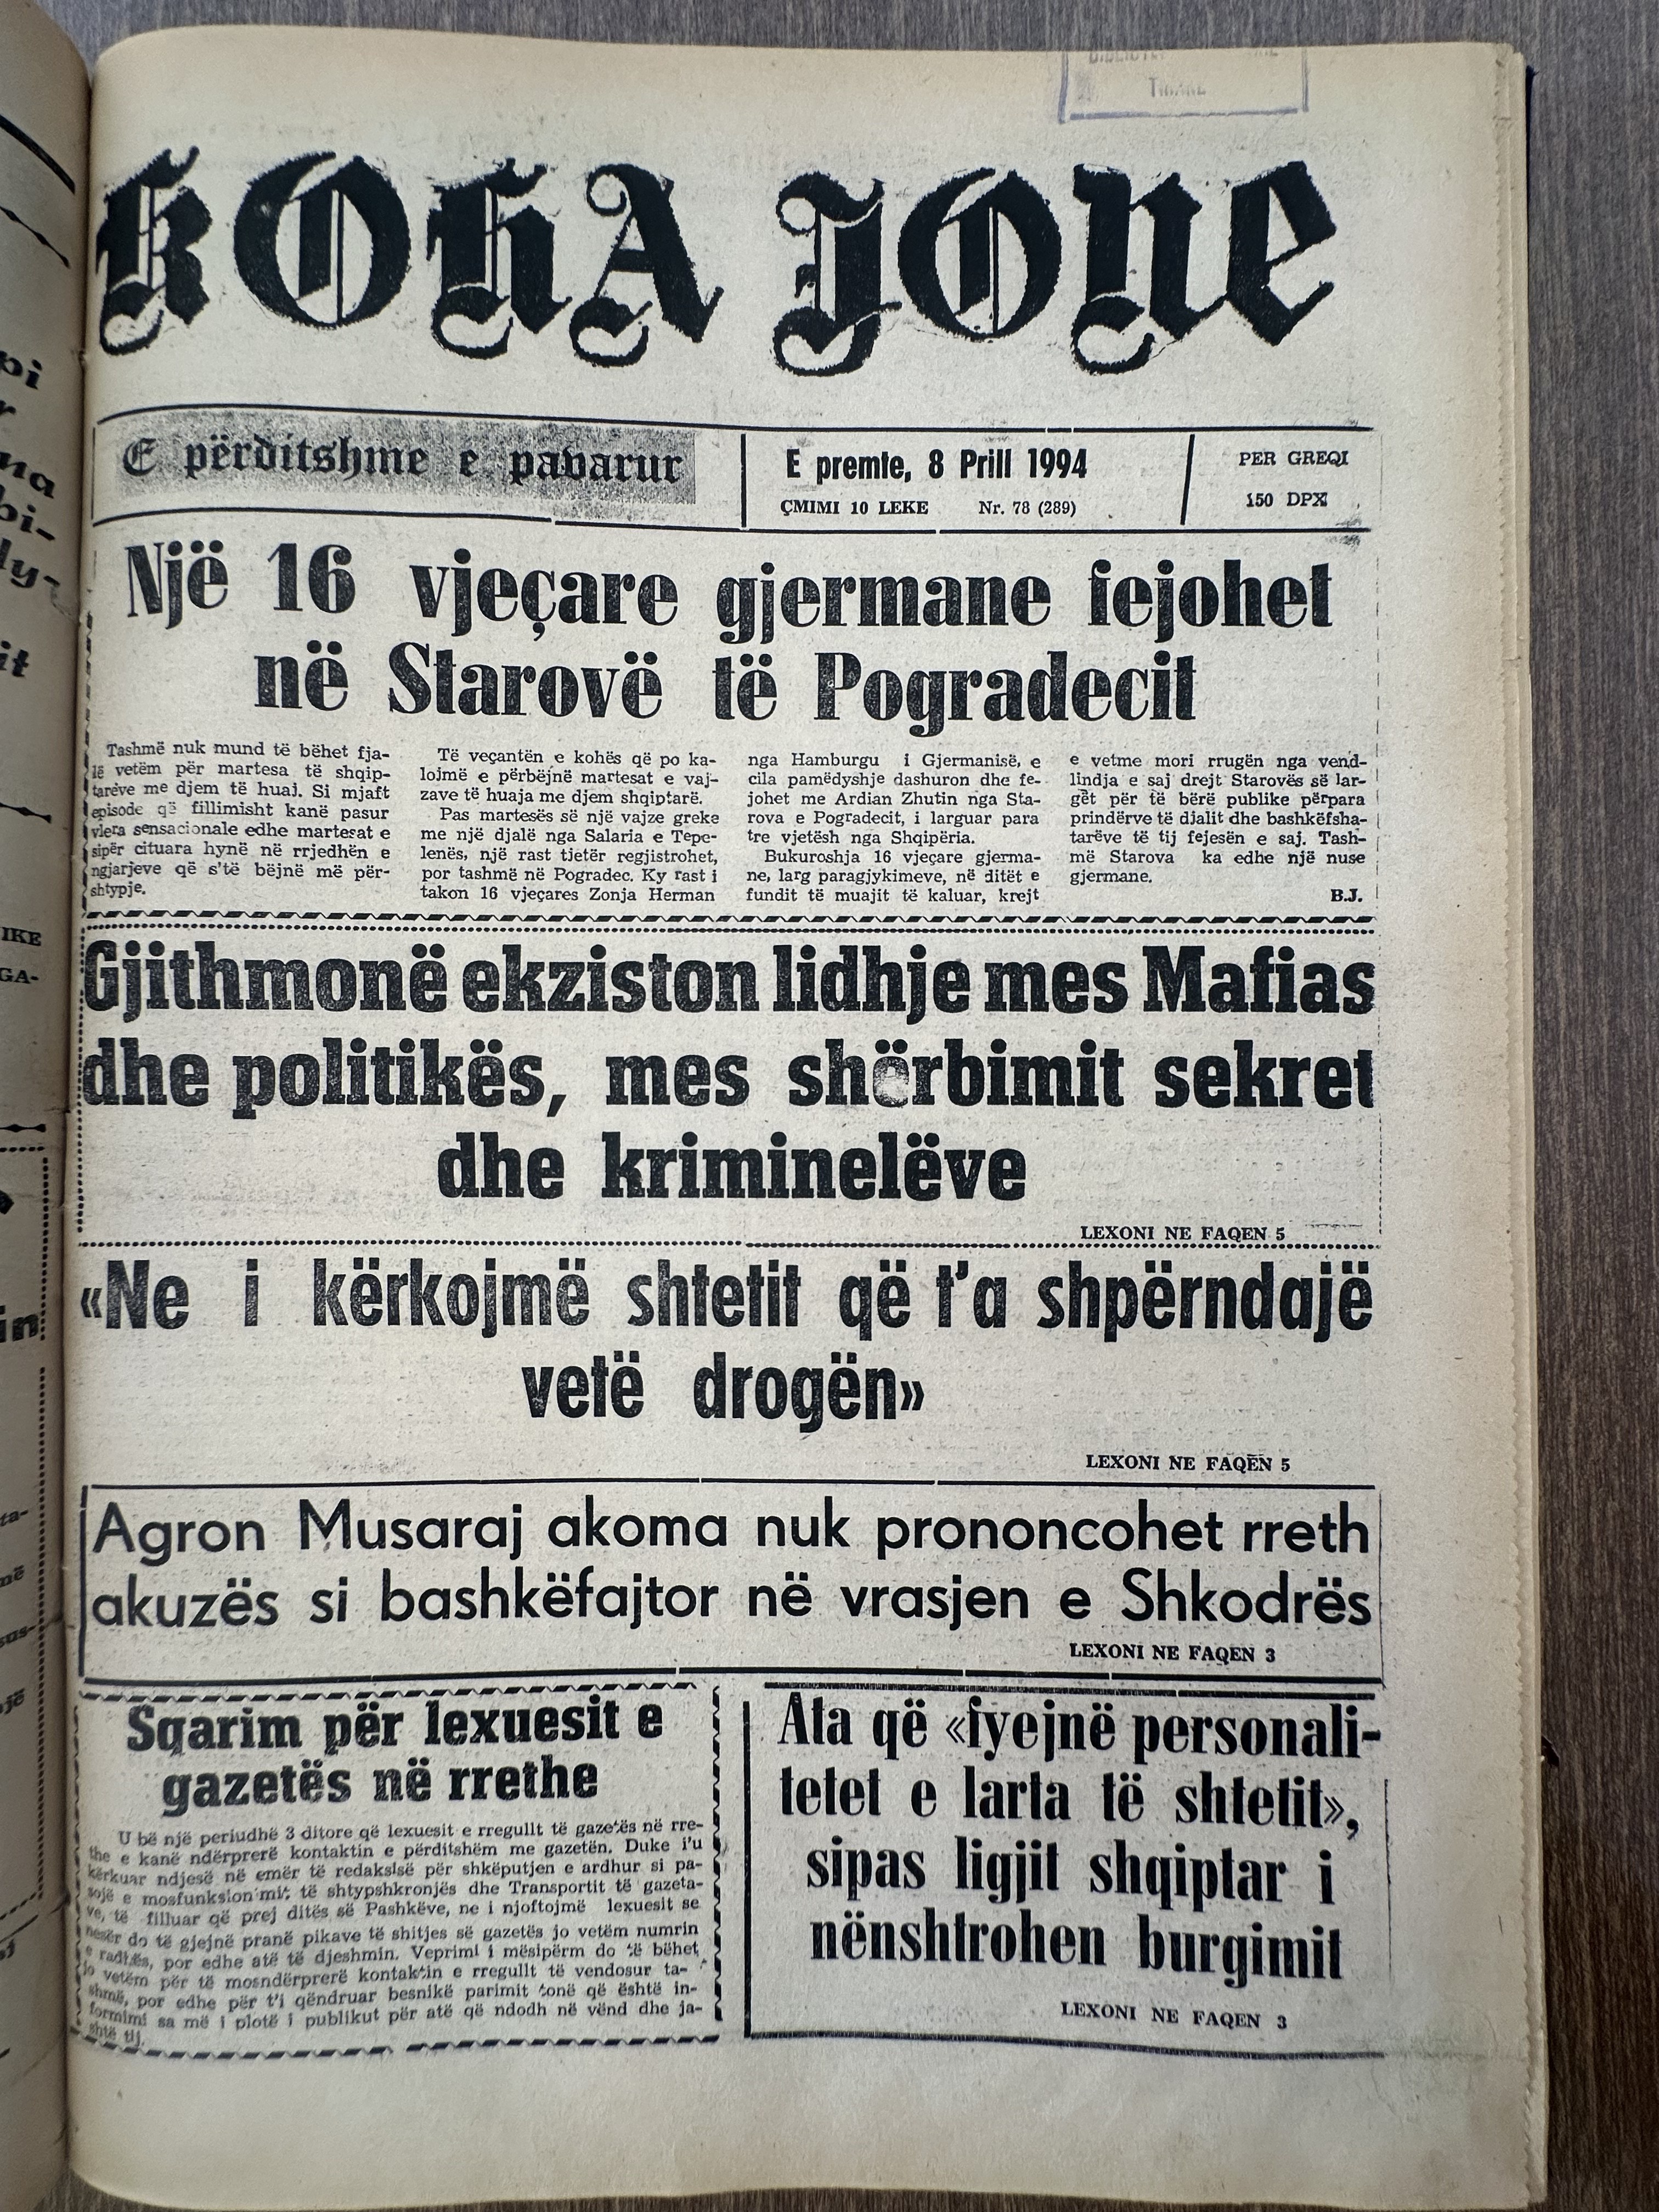 TIRANE
KOHA JONE
E përditshme e pavarur
E premte, 8 Prill 1994
ÇMIMI 10 LEKE Nr. 78 (289)
PER GREQI
150 DPX
Një 16 vjeçare gjermane fejohet
në Starovë të Pogradecit
Tashmë nuk mund të bëhet fja-
lë vetëm për martesa të shqip-
tarëve me djem të huaj. Si mjaft
episode që fillimisht kanë pasur
vlera sensacionale edhe martesat e
sipër cituara hynë në rrjedhën e
ngjarjeve që s'të bëjnë më për-
shtypje.
Të veçantën e kohës që po ka-
lojmë e përbëjnë martesat e vaj-
zave të huaja me djem shqiptarë.
Pas martesës së një vajze greke
me një djalë nga Salaria e Tepe-
lenës, një rast tjetër regjistrohet,
por tashmë në Pogradec. Ky rast i
takon 16 vjeçares Zonja Herman
nga Hamburgu i Gjermanisë, e
cila pamëdyshje dashuron dhe fe-
johet me Ardian Zhutin nga Sta-
rova e Pogradecit, i larguar para
tre vjetësh nga Shqipëria.
Bukuroshja 16 vjeçare gjerma-
ne, larg paragjykimeve, në ditët e
fundit të muajit të kaluar, krejt
e vetme mori rrugën nga vend-
lindja e saj drejt Starovës së lar-
gët për të bërë publike përpara
prindërve të djalit dhe bashkëfsha-
tarëve të tij fejesën e saj. Tash-
më Starova ka edhe një nuse
gjermane.
B.J.
Gjithmonë ekziston lidhje mes Mafias
dhe politikës, mes shërbimit sekret
dhe kriminelëve
LEXONI NE FAQEN 5
«Ne i kërkojmë shtetit që t'a shpërndajë
vetë drogën»
LEXONI NE FAQEN 5
Agron Musaraj akoma nuk prononcohet rreth
akuzës si bashkëfajtor në vrasjen e Shkodrës
LEXONI NE FAQEN 3
Sqarim për lexuesit e
gazetës në rrethe
U bë një periudhë 3 ditore që lexuesit e rregullt të gazetës në rre-
the e kanë ndërprerë kontaktin e përditshëm me gazetën. Duke i'u
kërkuar ndjesë në emër të redaksisë për shkëputjen e ardhur si pa-
sojë e mosfunksionimit të shtypshkronjës dhe Transportit të gazeta-
ve, të filluar që prej ditës së Pashkëve, ne i njoftojmë lexuesit se
nesër do të gjejnë pranë pikave të shitjes së gazetës jo vetëm numrin
e radhës, por edhe atë të djeshmin. Veprimi i mësipërm do të bëhet
jo vetëm për të mosndërprerë kontaktin e rregullt të vendosur ta-
shmë, por edhe për t'i qëndruar besnikë parimit tonë që është in-
formimi sa më i plotë i publikut për atë që ndodh në vënd dhe ja-
shtë tij.
Ata që «fyejnë personali-
tetet e larta të shtetit»,
sipas ligjit shqiptar i
nënshtrohen burgimit
LEXONI NE FAQEN 3